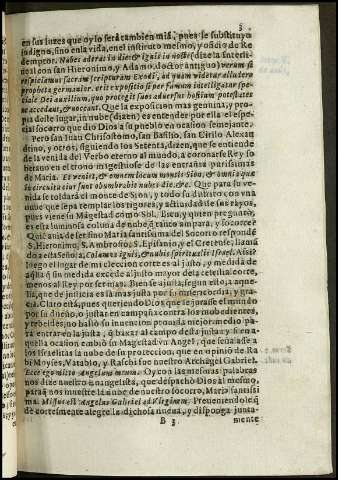 3
en sus luzes que oy lo será tambien mia, pues le substituyo
indigno, sino en la vida, en el instituto mesmo, y oficio de Re
demptor. Nubes aderat in die & ignis in nocte (dize la Interli
neal con san Hieronimo, y Adamo doctor antiguo) verum si
respiciamus sacram scripturam Exodi, ad quam videtur alludere
propheta germanior. erit expositio si per fumum intelligatur spe-
ciale Dei auxilium, quo protegit suos adversus hostium potestates
ne accedant, & noceant. Que la exposicion mas genuina, y pro-
pia deste lugar, in nube (dizen) es entender por ella el espe-
cial socorro que dio Dios a su pueblo en ocasion semejante.
Pero san Iuan Chrisostomo, san Basilio, san Cirilo Alexan
drino, y otros, siguiendo los Setenta, dizen, que se entiende
de la venida del Verbo eterno al mundo, a coronarse Rey so
berano en el trono magestuoso de las entrañas purissimas
de Maria. Et veniet, & omnem locum montis Sion, & omnia quæ
in circuitu eius sunt obumbrabit nubes die. &c. Que para su ve
nida se toldará el monte de Sion, y todo su distrito, con vna
nube que sepa templar los rigores, y actiuidad de sus rayos,
pues viene su Magestad como Sol. Bien, y quien pregunto,
es essa luminosa coluna de nube, q̃ tanto ampara, y socorre?
Quiẽ auia de ser sino Maria santissima del Socorro respondẽ
S. Hieronimo, S. Ambrosio, S. Epifanio, y el Cretense, llamã
do a esta Señora, Columna ignis, & nubis spiritualis Israel.
luego el lugar de mi eleccion cortes al justo, y medida de
aq̃lla q̃ sin medida excede al justo mayor de la celestial corte,
menos al Rey por ser mas. Bien se ajusta, segun esto, a aque-
lla, que de justicia es la mas justa por su misericordia, y gra-
cia. Claro está, pues queriendo Dios que se jurasse el mundo
por su dueño, o justar en campaña contra los inobedientes,
y rebeldes, no halló su inuencion poderosa mejor medio pa-
ra entrar en la justa, q̃ baxar al campo desta justa: y si en a-
quella ocasion embió su Magestad vn Angel, que señalasse a
los Israelitas la nube de su proteccion, que en opiniõ de Ra
bi Moyses, Vatablo, y Raschi fue nuestro Archãgel Gabriel.
Ecce ego mitto Angelum meum. Oy con las mesmas palabras
nos dize nuestro euangelista, que despachó Dios al mesmo,
para q̃ nos muestre la nube de nuestro socorro, Maria santissi
ma. Missus est Angelus Gabriel ad Virginem. Preueniendole q̃
de cortesmente alegre la dichosa nueua, y disponga junta-
B 3 mente